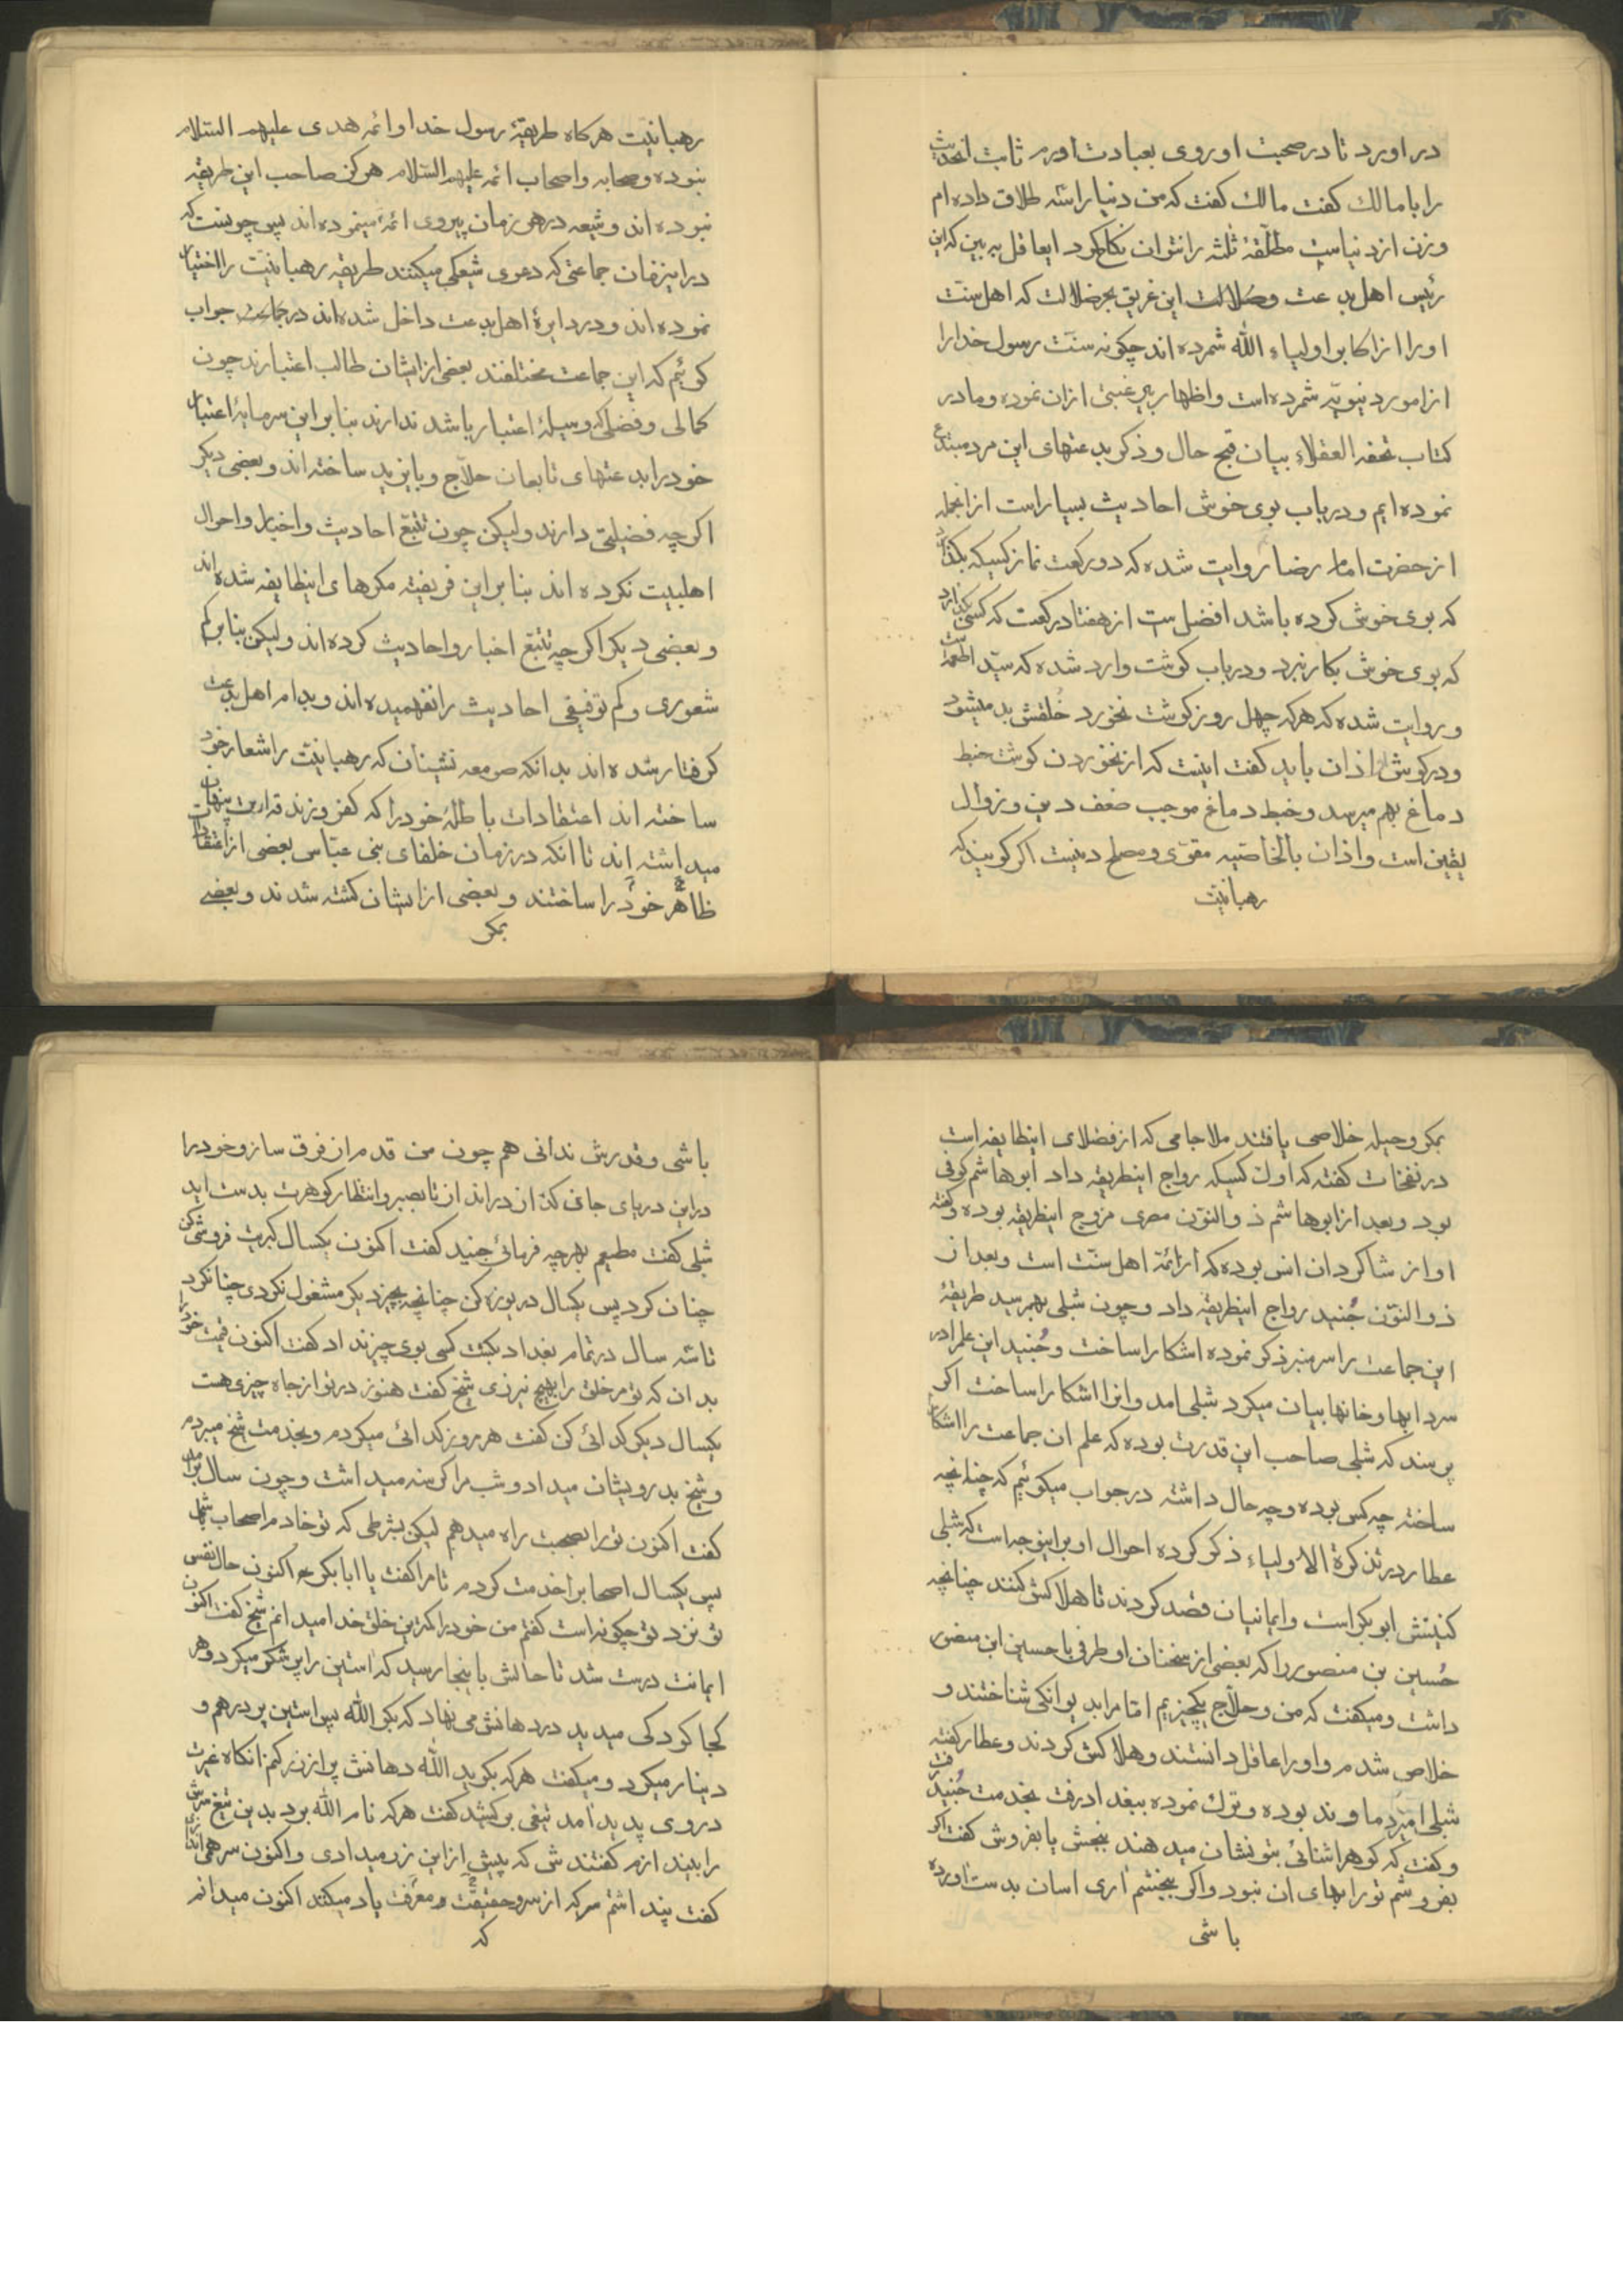 در اورد تا در صحبت او روی بعبادت اورم ثابت انحدیث
را با مالك کفت مالك کفت که من دنیا را سه طلاق داده ام
وزن از دنیاست مطلّقهٔ ثلثه را نتوان نکاح کرد ایعاقل به بین که این
رئیس اهل بدعت وضلالت این غریق بحر ضلالت که اهل سنت
او را از اکابر اولیاء الله شمرده اند چکونه سنّت رسول خدا را
از امور دنیویّه شمرده است واظهار بی رغبتی ازان نموده وما در
کتاب تحفة العقلاء بیان قبح حال وذکر بدعتهای این مرد مبتدع
نموده ایم ودر باب بوی خوش احادیث بسیار است از انجمله
از حضرت امام رضا روایت شده که دو رکعت نماز کسیکه بکذارد
که بوی خوش کرده باشد افضل ست از هفتاد رکعت که کسی بکذارد
که بوی خوش بکار نبرد ودر باب کوشت وارد شده که سیّد اطعمه است
وروایت شده که هر که چهل روز کوشت نخورد خُلقش بد میشود
ودر کوش او اذان باید کفت اینست که از نخوردن کوشت خبط
دماغ بهم میرسد وخبط دماغ موجب ضعف دین وزوال
یقین است واذان بالخاصّیه مقوّی ومصلح دینست اکر کویند که
رهبانیّت
رهبانیّت هرکاه طریقهٔ رسول خدا وائمه هدی علیهم السّلام
نبوده وصحابه واصحاب ائمه علیهم السّلام هرکز صاحب این طریقه
نبوده اند وشیعه در هر زمان پیروی ائمه مینموده اند پس چونست که
در این زمان جماعتی که دعوی شیعکی میکنند طریقه رهبانیّت را اختیار
نموده اند ودر دایرهٔ اهل بدعت داخل شده اند در جواب
کوئیم که این جماعت مختلفند بعضی از ایشان طالب اعتبارند چون
کمالی وفضلی که وسیلهٔ اعتبار باشد ندارند بنابراین سرمایهٔ اعتبار
خود را بدعتهای تابعان حلّاج وبایزید ساخته اند وبعضی دیکر
اکرچه فضیلتی دارند ولیکن چون تتبّع احادیث واخبار واحوال
اهلبیت نکرده اند بنابراین فریفته مکرهای اینطایفه شده اند
وبعضی دیکر اکرچه تتبّع اخبار واحادیث کرده اند ولیکن بنابر کم
شعوری وکم توفیقی احادیث را نفهمیده اند وبدام اهل بدعت
کرفتار شده اند بدانکه صومعه نشینان که رهبانیّت را شعار خود
ساخته اند اعتقادات باطلهٔ خود را که کفر وزندقه است پنهان
میداشته اند تا انکه در زمان خلفای بنی عبّاس بعضی از اعتقادات
ظاهر خود را ساختند وبعضی از ایشان کشته شدند وبعضی
بمکر
بمکر وحیله خلاصی یافتند ملا جامی که از فضلای اینطایفه است
در نفحات کفته که اول کسیکه رواج اینطریقه داد ابوهاشم کوفی
بود وبعد از ابوهاشم ذوالنّون مصری مروّج اینطریقه بوده وکفته
او از شاکردان انس بوده که از ائمّه اهل سنّت است وبعد از
ذوالنّون جُنید رواج اینطریقه داد وچون شبلی بهمرسید طریقهٔ
این جماعت را سر منبر ذکر نموده اشکارا ساخت وجُنید این علم را در
سردابها وخانها بیان میکرد شبلی امد وانرا اشکارا ساخت اکر
پرسند که شبلی صاحب این قدرت بوده که علم ان جماعت را اشکارا
ساخته چه کس بوده وچه حال داشته در جواب میکوئیم که چنانچه
عطار در تذکرة الاولیاء ذکر کرده احوال او براینوجه است که شبلی
کنیتش ابوبکر است وایمانیان قصد کردند تا هلاکش کنند چنانچه
حُسین بن منصور را که بعضی از سخنان او طرفی با حسین ابن منصور
داشت ومیکفت که من وحلّاج یکچیزیم امّا مرا بدیوانکی شناختند و
خلاص شدم واورا عاقل دانستند وهلاکش کردند وعطار کفته
شبلی امیر دماوند بوده وترك نموده ببغداد رفت بخدمت جُنید رفت
وکفت که کوهر اشنائی بتو نشان میدهند ببخش یا بفروش کفت اکر
بفروشم تو را بهای ان نبود واکر ببخشم اری اسان بدست اورده
باشی
باشی وقدرش ندانی هم چون من قدم از فرق ساز وخود را
در این دریای جان کن از در انداز تا بصبر وانتظار کوهرت بدست اید
شبلی کفت مطیعم بهرچه فرمائی جنید کفت اکنون یکسال کبریت فروشی کن
چنان کرد پس یکسال دریوزه کن چنانچه بچیز دیکر مشغول نکردی چنان کرد
تا سه سال در تمام بغداد بکشت کسی بوی چیز نداد کفت اکنون قیمت خود را
بدان که تو مر خلق را بهیچ نیرزی شیخ کفت هنوز در تو از جاه چیزی هست
یکسال دیکر کدائی کن کفت هر روز کدائی میکردم وبخدمت شیخ میبردم
وشیخ بدرویشان میداد وشب مرا کرسنه میداشت وچون سال برامد
کفت اکنون تو را بصحبت راه میدهم لیکن بشرطی که تو خادم اصحاب باشی
پس یکسال اصحاب را خدمت کردم تا مرا کفت یا ابابکر اکنون حال نفس
تو نزد تو چکونه است کفتم من خود را کمترین خلق خدا میدانم شیخ کفت اکنون
ایمانت درست شد تا حالش باینجا رسید که استین را پر شکر میکرد وهر
کجا کودکی میدید در دهانش می نهاد که بکو الله پس استین پر درهم و
دینار میکرد ومیکفت هرکه بکوید الله دهانش پر از زر کنم انکاه غیرت
در وی پدید امد تیغی برکشید کفت هرکه نام الله برد بدین تیغ سرش
را کفتند شی که پیش ازاین زر میدادی واکنون سر همی اندازی
کفت پنداشتم مرکه از سر حقیقت ومعرفت یاد میکنند اکنون میدانم
که